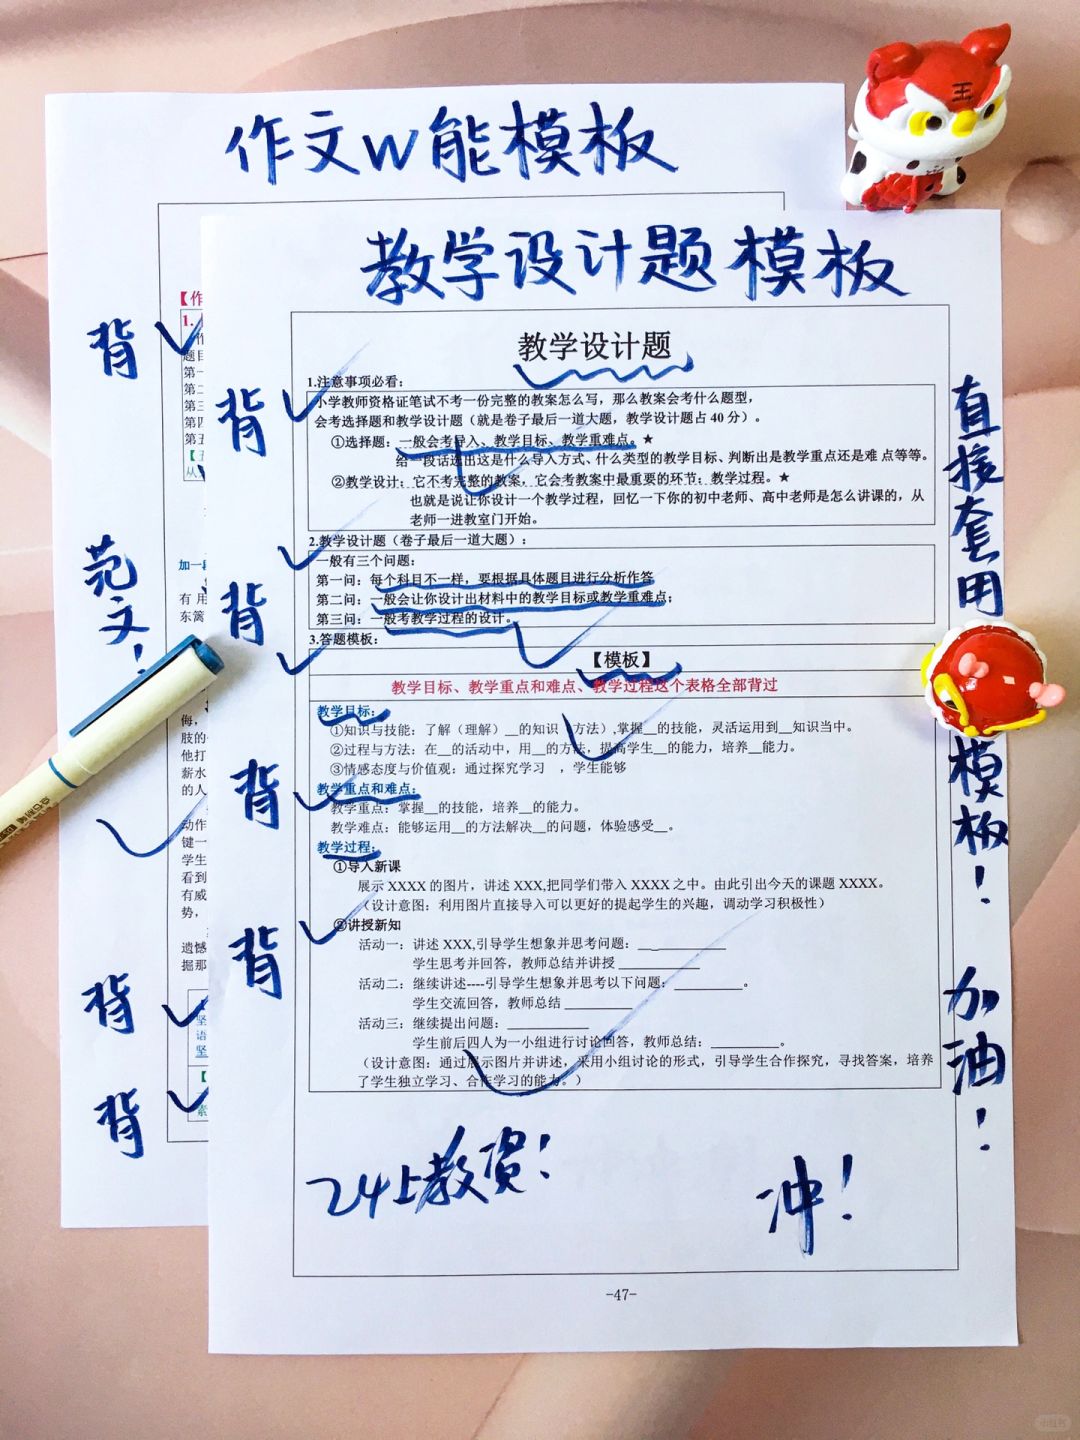 作文w能模板
教学设计题模板
背
背
范文！
背
背
背
背
背
直接套用
模板！
加油！
【作
1.
题目
第一
第二
第三
第四
第五
从
加一段
有用
东篱
侮，
肢的
他打
薪水
的人
动作
键一
学生
看到
有威
势，
遗憾
掘那
坚
语
坚
【
素
教学设计题
1.注意事项必看：
小学教师资格证笔试不考一份完整的教案怎么写，那么教案会考什么题型，
会考选择题和教学设计题（就是卷子最后一道大题，教学设计题占 40 分）。
①选择题：一般会考导入、教学目标、教学重难点。★
给一段话选出这是什么导入方式、什么类型的教学目标、判断出是教学重点还是难点等等。
②教学设计：它不考完整的教案，它会考教案中最重要的环节：教学过程。★
也就是说让你设计一个教学过程，回忆一下你的初中老师、高中老师是怎么讲课的，从
老师一进教室门开始。
2.教学设计题（卷子最后一道大题）：
一般有三个问题：
第一问：每个科目不一样，要根据具体题目进行分析作答
第二问：一般会让你设计出材料中的教学目标或教学重难点；
第三问：一般考教学过程的设计。
3.答题模板：
【模板】
教学目标、教学重点和难点、教学过程这个表格全部背过
教学目标：
①知识与技能：了解（理解）__的知识（方法）,掌握__的技能，灵活运用到__知识当中。
②过程与方法：在__的活动中，用__的方法，提高学生__的能力，培养__能力。
③情感态度与价值观：通过探究学习 ，学生能够
教学重点和难点：
教学重点：掌握__的技能，培养__的能力。
教学难点：能够运用__的方法解决__的问题，体验感受__。
教学过程：
①导入新课
展示 XXXX 的图片，讲述 XXX,把同学们带入 XXXX 之中。由此引出今天的课题 XXXX。
（设计意图：利用图片直接导入可以更好的提起学生的兴趣，调动学习积极性）
②讲授新知
活动一：讲述 XXX,引导学生想象并思考问题：____________
学生思考并回答，教师总结并讲授 ____________
活动二：继续讲述----引导学生想象并思考以下问题：__________。
学生交流回答，教师总结 __________
活动三：继续提出问题：____________
学生前后四人为一小组进行讨论回答，教师总结：__________。
（设计意图：通过展示图片并讲述，采用小组讨论的形式，引导学生合作探究，寻找答案，培养
了学生独立学习、合作学习的能力。）
24上教资！
冲！
-47-
王
小红书